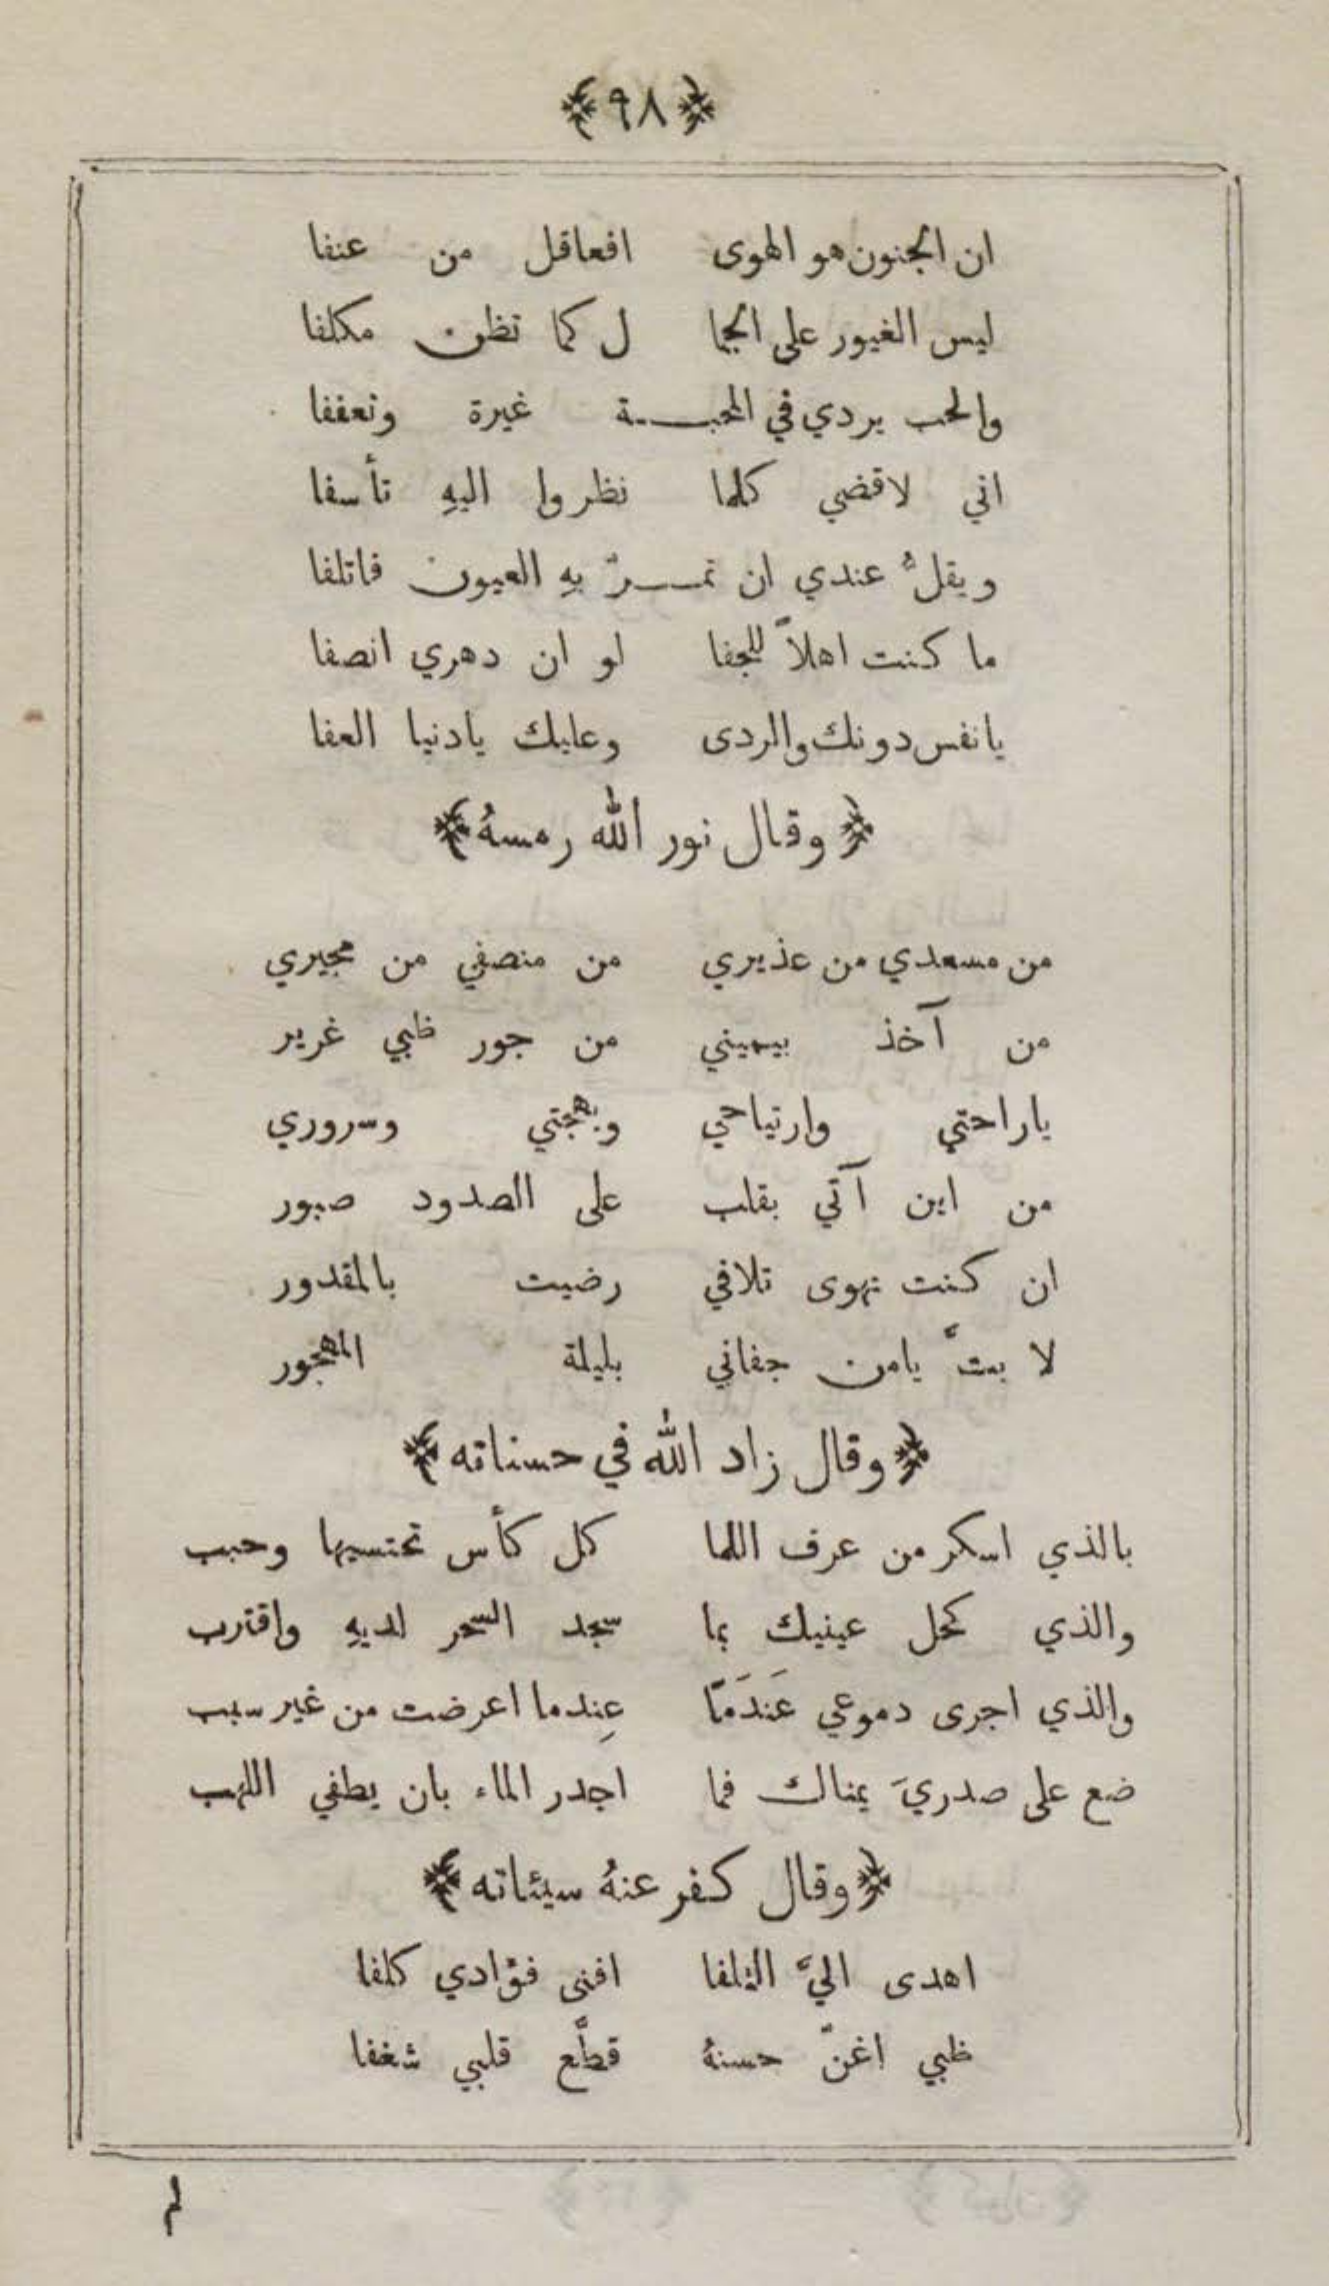 ﴿٩٨﴾
ان الجنون هو الهوى افعاقل من عنفا
ليس الغيور على الجما ل كما تظن مكلفا
والحب يردي في المحبـــة غيرة وتعففا
اني لاقضي كلما نظروا اليهِ تأسفا
ويقلُّ عندي ان تمـــرّ بهِ العيون فاتلفا
ما كنت اهلاً للجفا لو ان دهري انصفا
يا نفس دونك والردى وعليك يا دنيا العفا
﴿ وقال نور الله رمسهُ ﴾
من مسعدي من عذيري من منصفي من مجيري
من آخذ بيميني من جور ظبي غرير
يا راحتي وارتياحي وبهجتي وسروري
من اين آتي بقلب على الصدود صبور
ان كنت تهوى تلافي رضيت بالمقدور
لا بتَّ يا من جفاني بليلة المهجور
﴿ وقال زاد الله في حسناته ﴾
بالذي اسكر من عرف اللما كل كأس تحتسيها وحبب
والذي كحل عينيك بما سجد السحر لديهِ واقترب
والذي اجرى دموعي عَندَمًا عِندما اعرضت من غير سبب
ضع على صدريَ يمناك فما اجدر الماء بان يطفي اللهب
﴿ وقال كفر عنهُ سيئاته ﴾
اهدى اليَّ التلفا افنى فؤادي كلفا
ظبي اغنّ حسنهُ قطَّع قلبي شغفا
لم